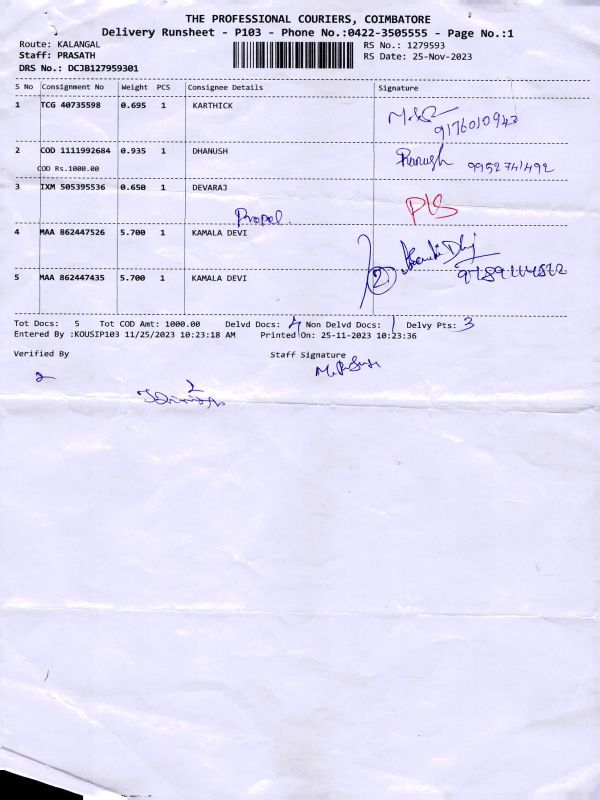 THE PROFESSIONAL COURIERS, COIMBATORE
Delivery Runsheet - P103 - Phone No.:0422-3505555 - Page No.:1
Route: KALANGAL RS No.: 1279593
Staff: PRASATH RS Date: 25-Nov-2023
DRS No.: DCJB127959301
S No Consignment No Weight PCS Consignee Details Signature
1 TCG 40735598 0.695 1 KARTHICK
9176010943
2 COD 1111992684 0.935 1 DHANUSH
9952741492
COD Rs.1000.00
3 IXM 505395536 0.650 1 DEVARAJ
4 MAA 862447526 5.700 1 KAMALA DEVI
2
5 MAA 862447435 5.700 1 KAMALA DEVI
Tot Docs: 5 Tot COD Amt: 1000.00 Delvd Docs: 4 Non Delvd Docs: 1 Delvy Pts: 3
Entered By :KOUSIP103 11/25/2023 10:23:18 AM Printed On: 25-11-2023 10:23:36
Verified By Staff Signature